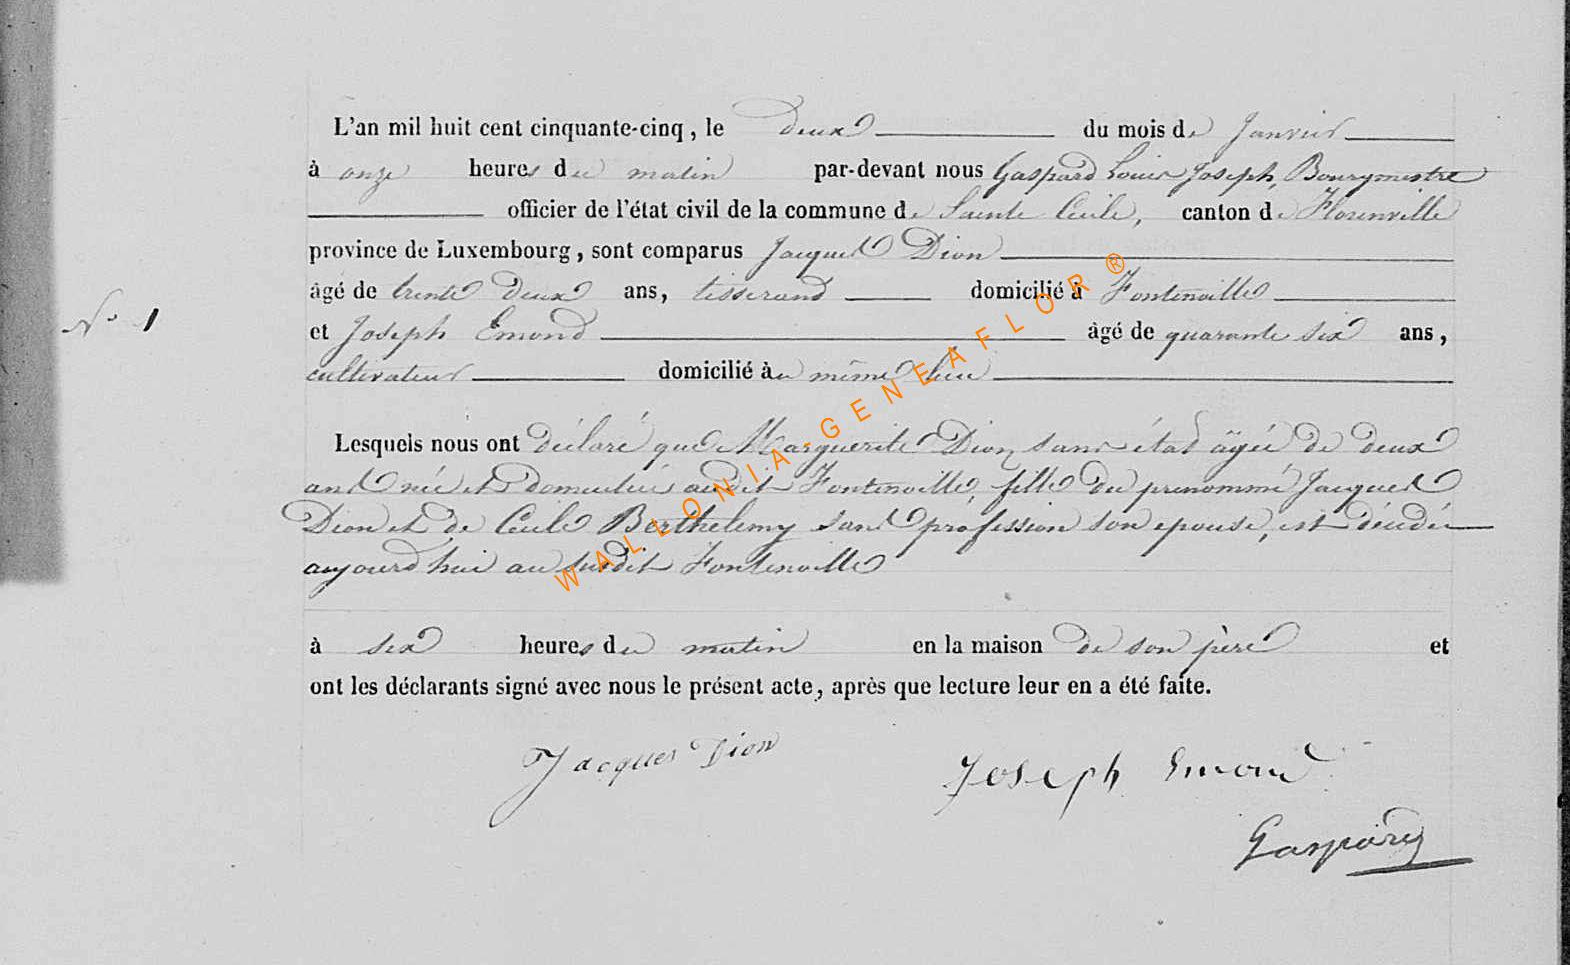 L'an mil huit cent cinquante-cinq, le deux du mois de Janvier
à onze heures du matin par-devant nous Gaspard Louis Joseph, Bourgmestre
officier de l'état civil de la commune de Sainte Cecile, canton de Florenville
province de Luxembourg, sont comparus Jacques Dion
âgé de trente deux ans, tisserand domicilié à Fontenoille
N° 1
et Joseph Emond âgé de quarante six ans,
cultivateur domicilié au même lieu
Lesquels nous ont déclaré que Marguerite Dion sans état âgée de deux
ans née et domiciliée audit Fontenoille, fille du prénommé Jacques
Dion et de Cecile Berthelemy sans profession son epouse, est décédée
aujourd'hui au susdit Fontenoille
à six heures du matin en la maison de son père et
ont les déclarants signé avec nous le présent acte, après que lecture leur en a été faite.
Jacques Dion
Joseph Emond
Gaspard
WALLONIA-GENEAFLOR®